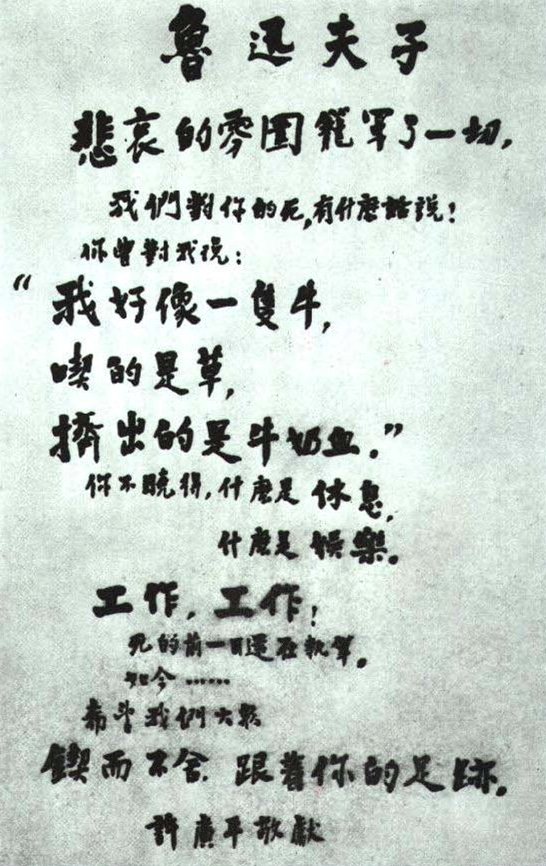 魯迅夫子
悲哀的雰圍籠罩了一切,
我們對你的死,有什麼話說!
你曾對我說:
“我好像一隻牛,
喫的是草,
擠出的是牛奶血.”
你不曉得,什麼是休息,
什麼是娛樂。
工作,工作!
死的前一日還在執筆。
如今……
希望我們大眾
鍥而不舍,跟着你的足跡。
許廣平敬獻